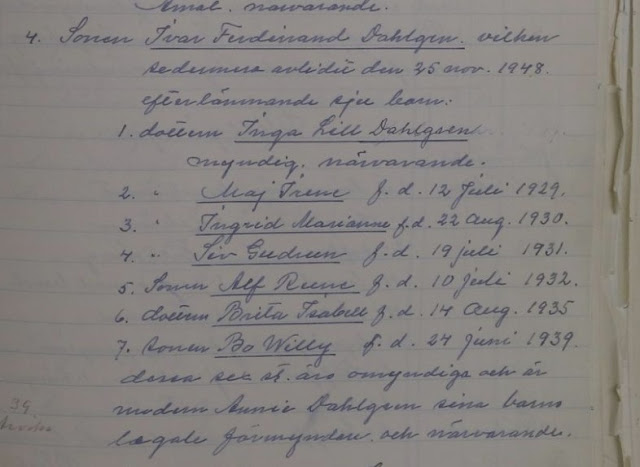 Åmål. närvarande.
4. Sonen Ivar Ferdinand Dahlgren. vilken
sedermera avlidit den 25 nov. 1948.
efterlämnande sju barn:
1. dottern Inga Lill Dahlgren
myndig. närvarande.
2. " Maj Irene f. d. 12 Juli 1929.
3. " Ingrid Marianne f.d. 22 Aug. 1930.
4. " Siv Gudrun f.d. 19 juli 1931.
5. Sonen Alf Rune f. d. 10 juli 1932.
6. dottern Brita Isabell f. d. 14 Aug. 1935
7. sonen Bo Willy f. d. 24 Juni 1939.
dessa sex st. äro omyndiga och är
modern Annie Dahlgren sina barns
39.
legale förmyndare. och närvarande.